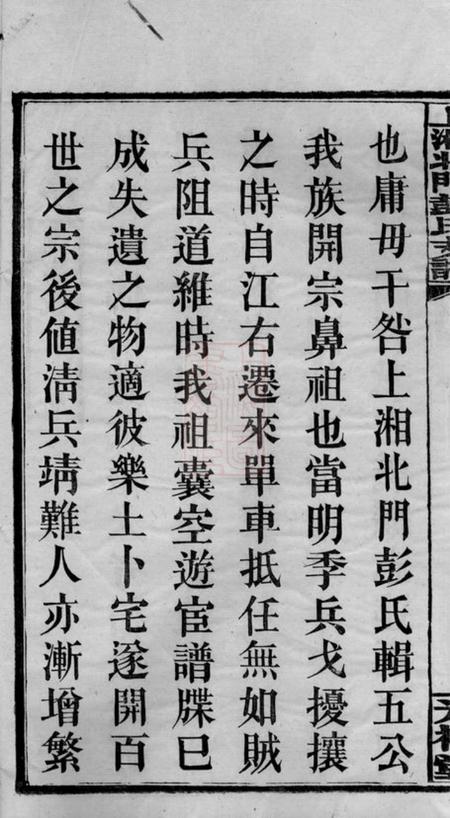 也庸毋干咎上湘北門彭氏輯五公
我族開宗鼻祖也當明季兵戈擾攘
之時自江右遷來單車抵任無如賊
兵阻道維時我祖囊空遊宦譜牒已
成失遺之物適彼樂土卜宅遂開百
世之宗後值淸兵靖難人亦漸增繁